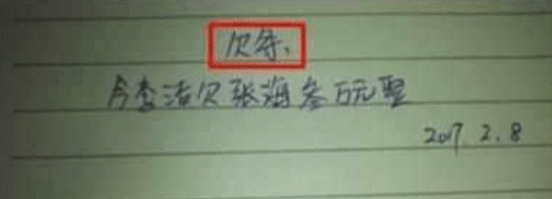 欠条、
今李洁欠张海叁万元整
2017. 2. 8